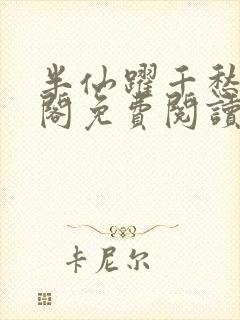 半仙躍千愁
閣免費閱讀
卡尼尔